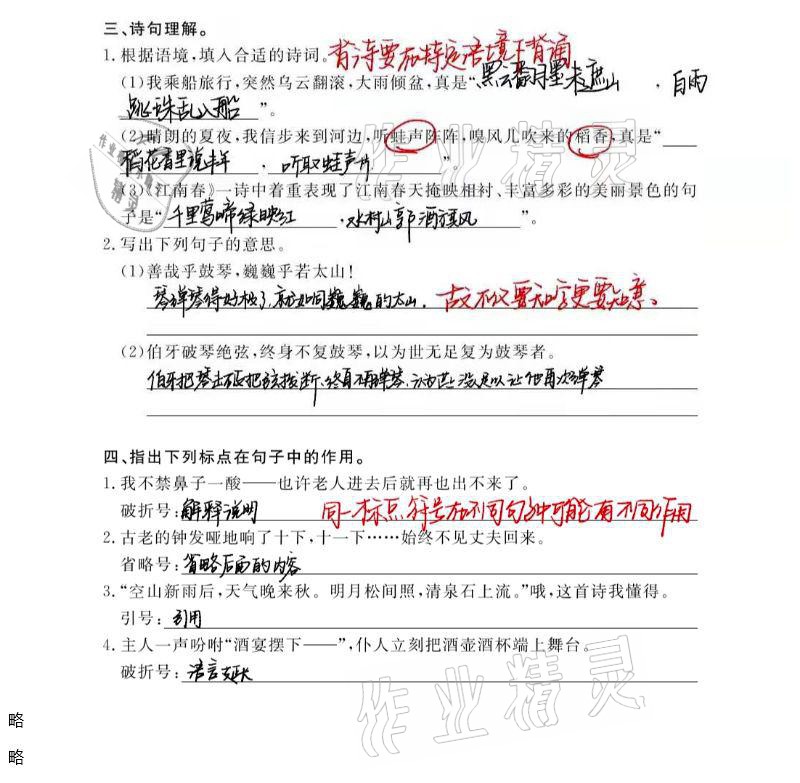 三、诗句理解。
1. 根据语境,填入合适的诗词。背诗要在特定语境下背诵
(1)我乘船旅行,突然乌云翻滚,大雨倾盆,真是“黑云翻墨未遮山,白雨
跳珠乱入船”。
(2)晴朗的夏夜,我信步来到河边,听蛙声阵阵,嗅风儿吹来的稻香,真是“
稻花香里说丰年,听取蛙声片”
(3)《江南春》一诗中着重表现了江南春天掩映相衬、丰富多彩的美丽景色的句
子是“千里莺啼绿映红,水村山郭酒旗风”。
2. 写出下列句子的意思。
(1)善哉乎鼓琴,巍巍乎若太山!
琴弹琴得好极了,就如同巍巍的太山。古不仅要知字更要知意。
(2)伯牙破琴绝弦,终身不复鼓琴,以为世无足复为鼓琴者。
伯牙把琴击破把弦拨断,终身不再弹琴,认为世上没足以让他再次弹琴
四、指出下列标点在句子中的作用。
1. 我不禁鼻子一酸——也许老人进去后就再也出不来了。
破折号:解释说明 同一标点符号在不同句子中可能有不同作用
2. 古老的钟发哑地响了十下,十一下……始终不见丈夫回来。
省略号:省略后面的内容
3. “空山新雨后,天气晚来秋。明月松间照,清泉石上流。”哦,这首诗我懂得。
引号:引用
4. 主人一声吩咐“酒宴摆下——”,仆人立刻把酒壶酒杯端上舞台。
破折号:语言延长
作业精灵
作业精灵
略
略